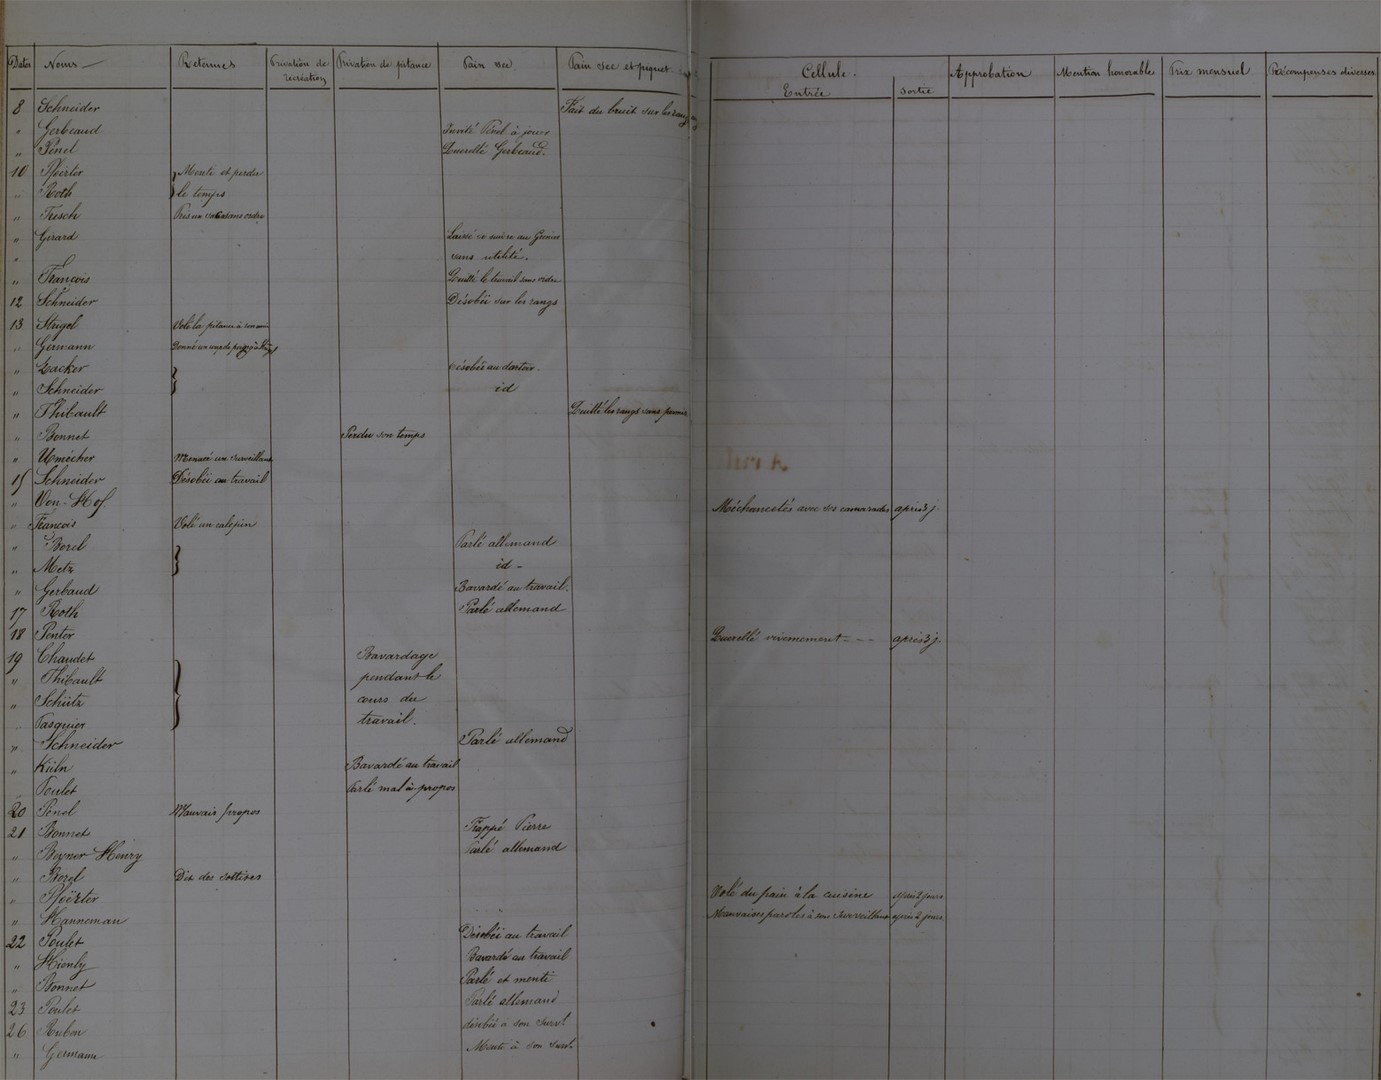 Dates Noms — Retenues Privation de récréation Privation de pitance Pain sec Pain sec et piquet Cellule. Entrée sortie Approbation Mention honorable Prix mensuel Récompenses diverses
8 Schneider Fait du bruit sur les rangs
" Gerbeaud Invité Pénel à jouer
" Pénel Querellé Gerbeaud.
10 Pfoërter } Menti et perdu
" Roth le temps
" Tresch Pris un sans ordre
" Girard Laissé au Grenier
" sans utilité.
" François Quitté le travail sans ordre
12 Schneider Désobéi sur les rangs
13 Strigel Volé la pitance à son
" Germann Donné un coup de poing à
" Lacker } désobéi au dortoir.
" Schneider id
" Thibault Quitté les rangs sans permis.
" Bonnet Perdu son temps
" Umécher Menacé un surveillant
15 Schneider Désobéi au travail
" Von-Hof. Méchancetés avec ses camarades après 3 j.
" François Volé un calepin
" Borel } Parlé allemand
" Metz id -
" Gerbaud Bavardé au travail.
17 Roth Parlé allemand
18 Penter Querellé vivemement - - - après 3 j.
19 Chaudet } Bavardage
" Thibault pendant le
" Schütz cours du
" Pasquier travail.
" Schneider Parlé allemand
" Küln Bavardé au travail
" Poulet Parlé mal à-propos
20 Penel Mauvais propos
21 Bonnet Frappé Pierre
" Beyner Henry Parlé allemand
" Borel Dit des sottises
" Pfoërter Volé du pain à la cuisine après 2 jours
" Hanneman Mauvaises paroles à son surveillant après 2 jours
22 Poulet Désobéi au travail
" Hienly Bavardé au travail
" Bonnet Parlé et menti
23 Poulet Parlé allemand
26 Ruban désobéi à son survt
" Germann Menti à son survt.